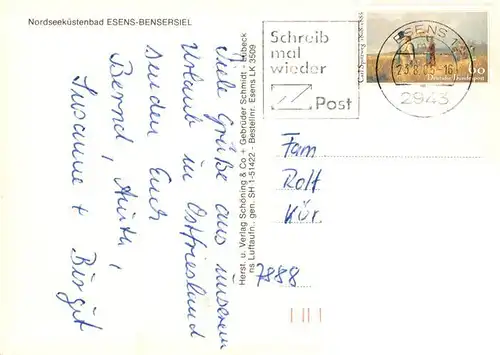 Nordseeküstenbad ESENS-BENSERSIEL
Viele Grüße aus unserem
Urlaub in Ostfriesland
senden Euch
Bernd, Anita,
Susanne + Birgit
Herst. u. Verlag Schöning & Co + Gebrüder Schmidt - Lübeck
ns Luftaufn., gen. SH 1-51422 - Bestellnr. Esens LK 3509
Schreib
mal
wieder
Post
ESENS
2943
60
Deutsche Bundespost
Fam
Rolf
Kür.
7888